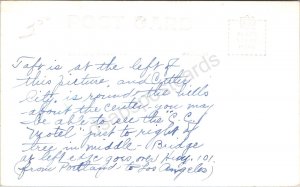 POST CARD
Taft is at the left of
this picture, and Cutler
City, is round the hills
about the center - you may
be able to see the C. City
"Motel" just to right of
tree in middle - Bridge
at left edge goes over Hdy. 101
(from Portland to Los Angeles)